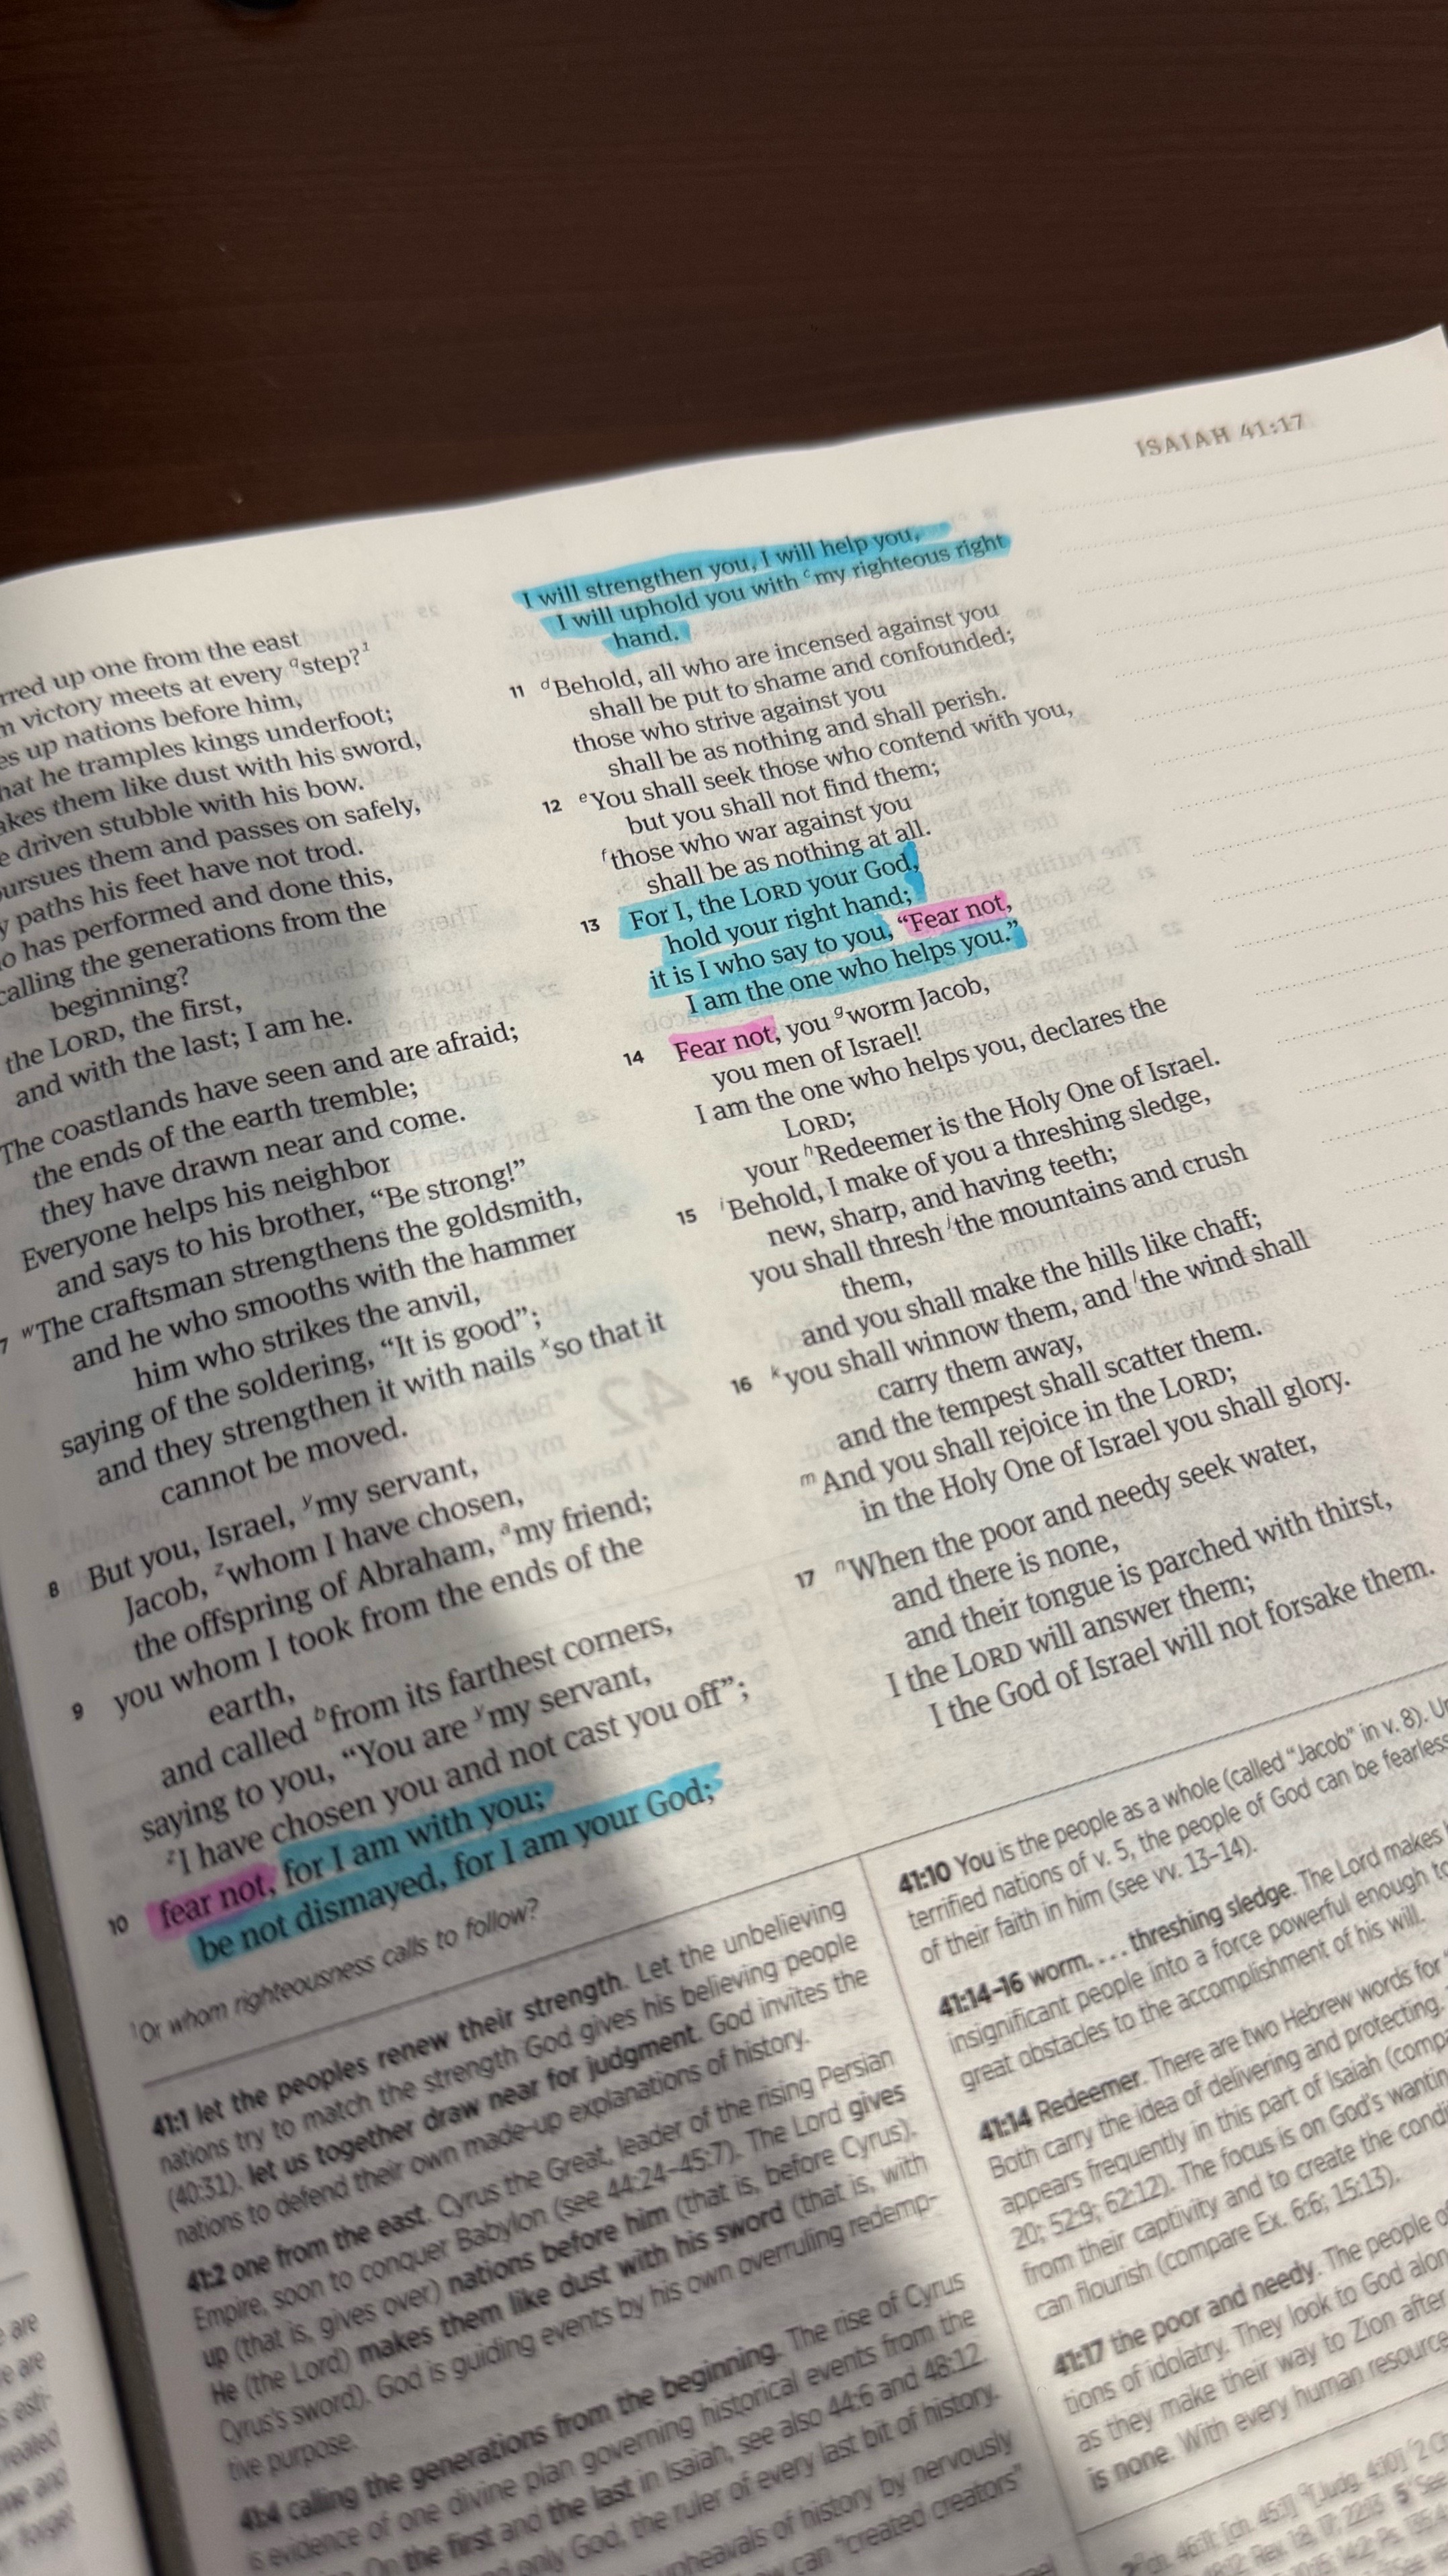 ISAIAH 41:17
rred up one from the east
victory meets at every q step? 1
es up nations before him,
hat he tramples kings underfoot;
akes them like dust with his sword,
driven stubble with his bow.
ursues them and passes on safely,
y paths his feet have not trod.
o has performed and done this,
calling the generations from the
beginning?
the LORD, the first,
and with the last; I am he.
The coastlands have seen and are afraid;
the ends of the earth tremble;
they have drawn near and come.
Everyone helps his neighbor
and says to his brother, “Be strong!”
7 w The craftsman strengthens the goldsmith,
and he who smooths with the hammer
him who strikes the anvil,
saying of the soldering, “It is good”;
and they strengthen it with nails x so that it
cannot be moved.
8 But you, Israel, y my servant,
Jacob, z whom I have chosen,
the offspring of Abraham, a my friend;
9 you whom I took from the ends of the
earth,
and called b from its farthest corners,
saying to you, “You are y my servant,
z I have chosen you and not cast you off”;
10 fear not, for I am with you;
be not dismayed, for I am your God;
I will strengthen you, I will help you,
I will uphold you with c my righteous right
hand.
11 d Behold, all who are incensed against you
shall be put to shame and confounded;
those who strive against you
shall be as nothing and shall perish.
12 e You shall seek those who contend with you,
but you shall not find them;
f those who war against you
shall be as nothing at all.
13 For I, the LORD your God,
hold your right hand;
it is I who say to you, “Fear not,
I am the one who helps you.”
14 Fear not, you g worm Jacob,
you men of Israel!
I am the one who helps you, declares the
LORD;
your h Redeemer is the Holy One of Israel.
15 i Behold, I make of you a threshing sledge,
new, sharp, and having teeth;
you shall thresh j the mountains and crush
them,
and you shall make the hills like chaff;
16 k you shall winnow them, and l the wind shall
carry them away,
and the tempest shall scatter them.
m And you shall rejoice in the LORD;
in the Holy One of Israel you shall glory.
17 n When the poor and needy seek water,
and there is none,
and their tongue is parched with thirst,
I the LORD will answer them;
I the God of Israel will not forsake them.
1 Or whom righteousness calls to follow?
41:1 let the peoples renew their strength. Let the unbelieving
nations try to match the strength God gives his believing people
(40:31). let us together draw near for judgment. God invites the
nations to defend their own made-up explanations of history.
41:2 one from the east. Cyrus the Great, leader of the rising Persian
Empire, soon to conquer Babylon (see 44:24–45:7). The Lord gives
up (that is, gives over) nations before him (that is, before Cyrus).
He (the Lord) makes them like dust with his sword (that is, with
Cyrus's sword). God is guiding events by his own overruling redemp-
tive purpose.
41:4 calling the generations from the beginning. The rise of Cyrus
is evidence of one divine plan governing historical events from the
On the first and the last in Isaiah, see also 44:6 and 48:12.
only God, the ruler of every last bit of history.
upheavals of history by nervously
can “created creators”
41:10 You is the people as a whole (called “Jacob” in v. 8). Un
terrified nations of v. 5, the people of God can be fearless
of their faith in him (see vv. 13–14).
41:14–16 worm. . . . threshing sledge. The Lord makes
insignificant people into a force powerful enough to
great obstacles to the accomplishment of his will.
41:14 Redeemer. There are two Hebrew words for
Both carry the idea of delivering and protecting.
appears frequently in this part of Isaiah (comp
20; 52:9; 62:12). The focus is on God's wantin
from their captivity and to create the condi
can flourish (compare Ex. 6:6; 15:13).
41:17 the poor and needy. The people o
tions of idolatry. They look to God alon
as they make their way to Zion after
is none. With every human resource